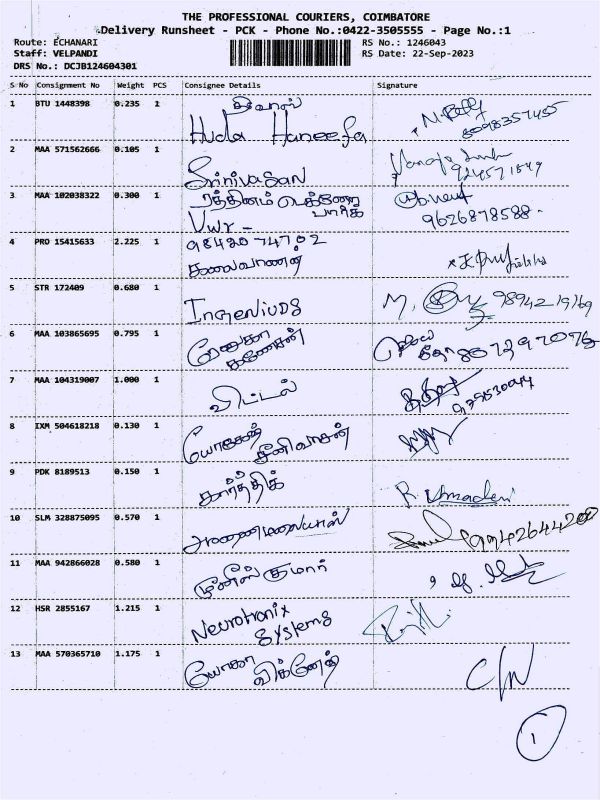 THE PROFESSIONAL COURIERS, COIMBATORE
Delivery Runsheet - PCK - Phone No.:0422-3505555 - Page No.:1
Route: ECHANARI
RS No.: 1246043
Staff: VELPANDI
RS Date: 22-Sep-2023
DRS No.: DCJB124604301
S No Consignment No Weight PCS Consignee Details Signature
1 BTU 1448398 0.235 1
Huda Haneefa 8098357455
2 MAA 571562666 0.105 1
Srinivasan
3 MAA 102038322 0.300 1 ரத்தினம் டெக்னோ பார்க்
VWR - 9626878588
4 PRO 15415633 2.225 1 9843074702
கலைவாணன்
5 STR 172409 0.680 1
Ingenious M. 9894219169
6 MAA 103865695 0.795 1
கணேசன்
7 MAA 104319007 1.000 1
விட்டல்
8 IXM 504618218 0.130 1 யோகேஷ்
சீனிவாசன்
9 PDK 8189513 0.150 1
கார்த்திக் R. Umadevi
10 SLM 328875095 0.570 1
11 MAA 942866028 0.580 1
முனீஸ் குமார்
12 HSR 2855167 1.215 1
Neurotronix
Systems
13 MAA 570365710 1.175 1 யோகா
விக்னேஷ்
1